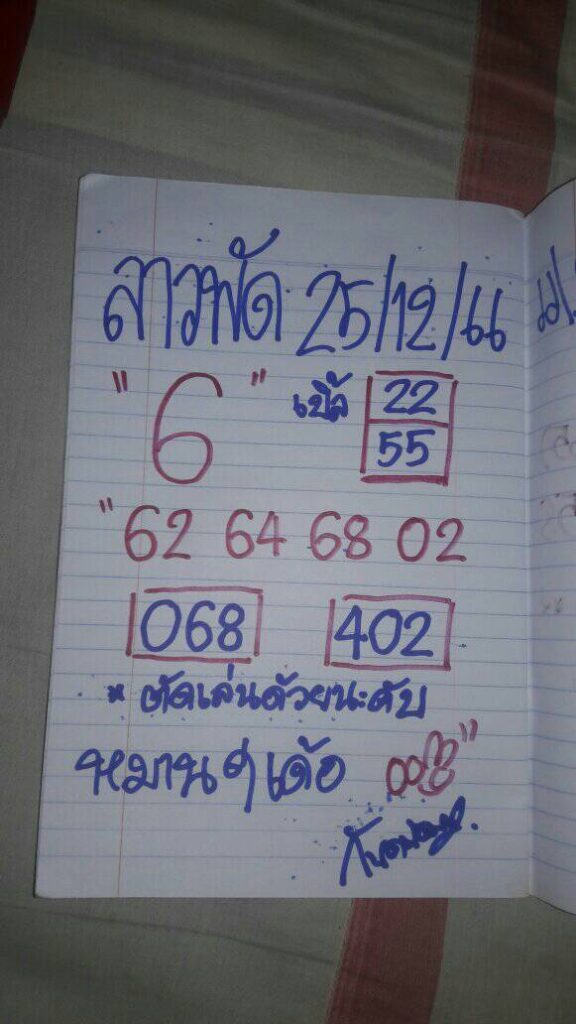 ลาวพัด 25/12/60
"6" เบิ้ล 22
55
"62 64 68 02
068 402
* ตัดเล่นด้วยนะคับ
หมานๆเด้อ